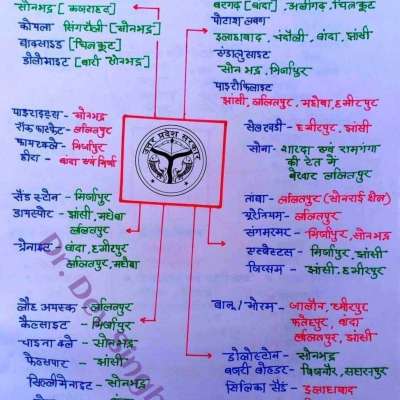 सोनभद्र [कजराहट]
कोयला सिंगरौली [सोनभद्र]
बाक्साइड [चित्रकूट]
डोलोमाइट [बारी सोनभद्र]
बरगढ़ [बांदा], अलीगढ़, चित्रकूट
पोटाश लवण
इलाहाबाद, चंदौली, बांदा, झांसी
एंडालुसाइट
सोनभद्र, मिर्जापुर
पाइरोफिलाइट
झांसी, ललितपुर, महोबा, हमीरपुर
पाइराइट्स - सोनभद्र
रॉक फास्फेट - ललितपुर
फायरक्ले - मिर्जापुर
हीरा - बांदा एवं मिर्जा
उत्तर प्रदेश सरकार
सेलखड़ी - हमीरपुर, झांसी
सोना - शारदा एवं रामगंगा
की रेत में
ललितपुर
सैंड स्टोन - मिर्जापुर
डायस्पोर - झांसी, महोबा
ललितपुर
ग्रेनाइट - बांदा, हमीरपुर
ललितपुर, महोबा
तांबा - ललितपुर (सोनराई क्षेत्र)
यूरेनियम - ललितपुर
संगमरमर - मिर्जापुर, सोनभद्र
एस्बेस्टस - मिर्जापुर, झांसी
जिप्सम - झांसी, हमीरपुर
लौह अयस्क - ललितपुर
कैल्साइट - मिर्जापुर
चाइना क्ले - सोनभद्र
फेल्सपार - झांसी
सिलीमेनाइट - सोनभद्र
बालू/मोरम - जालौन, हमीरपुर
फतेहपुर, बांदा
ललितपुर, झांसी
डोलोस्टोन - सोनभद्र
बजरी बोल्डर - बिजनौर, सहारनपुर
सिलिका सैंड - इलाहाबाद